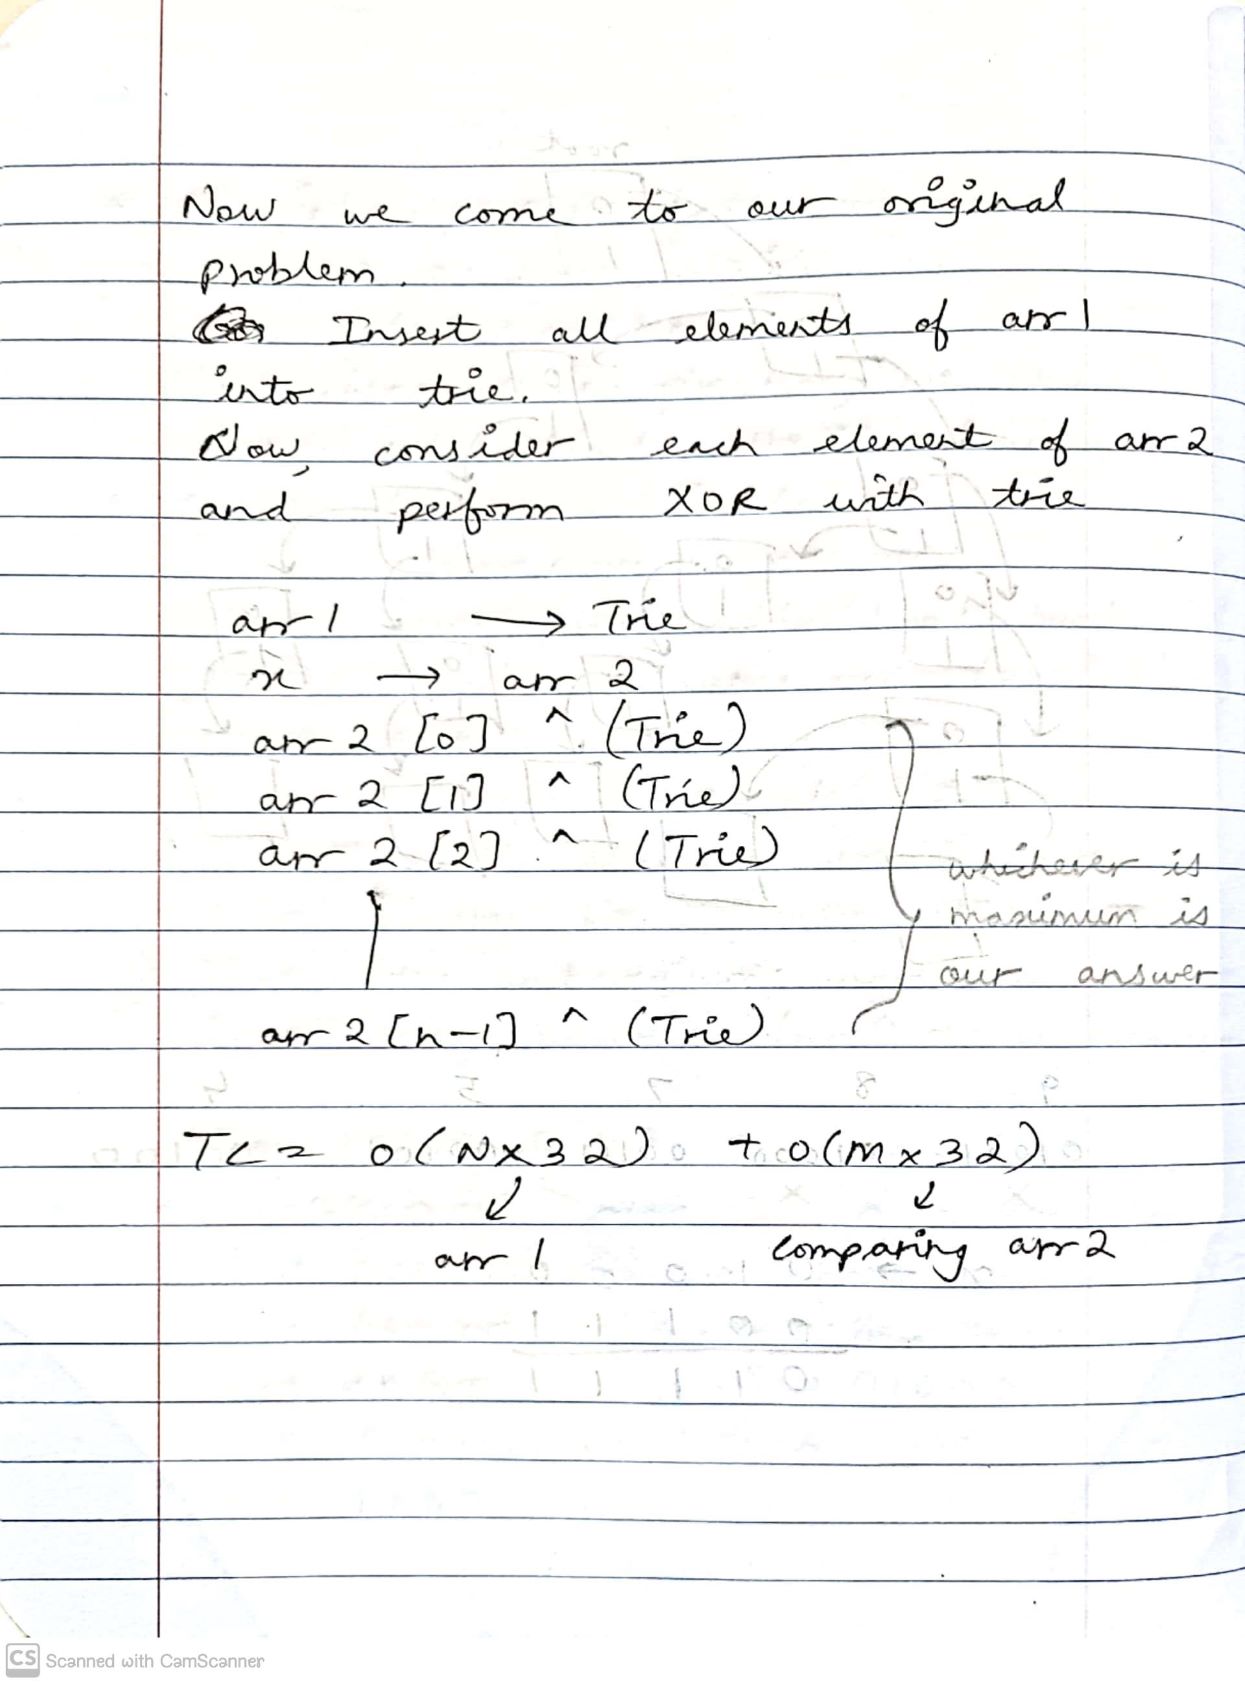 Now we come to our original
problem.
Insert all elements of arr 1
into trie.
Now, consider each element of arr 2
and perform XOR with trie
arr 1 → Trie
x → arr 2
arr 2 [0] ^ (Trie)
arr 2 [1] ^ (Trie)
arr 2 [2] ^ (Trie)
whichever is
maximum is
our answer
arr 2 [n-1] ^ (Trie)
TC = O(N×32) + O(M×32)
arr 1
comparing arr 2
CS Scanned with CamScanner